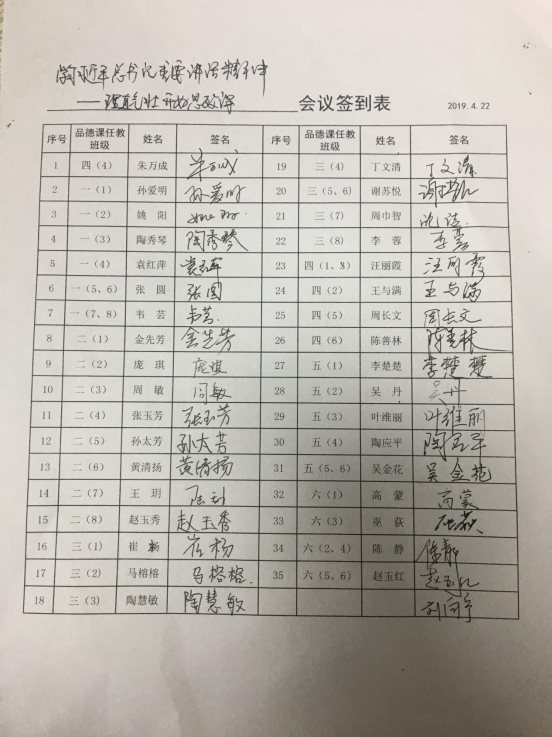 学习近平总书记重要讲话精神
——理直气壮开好思政课 会议签到表 2019.4.22
序号 品德课任教班级 姓名 签名 序号 品德课任教班级 姓名 签名
1 四（4） 朱万成 朱万成 19 三（4） 丁文清 丁文清
2 一（1） 孙爱明 孙爱明 20 三（5、6） 谢苏悦 谢苏悦
3 一（2） 姚阳 21 三（7） 周巾智
4 一（3） 陶秀琴 陶秀琴 22 三（8） 李蓉 李蓉
5 一（4） 袁红萍 袁红萍 23 四（1、3） 汪丽霞 汪丽霞
6 一（5、6） 张圆 张圆 24 四（2） 王与满 王与满
7 一（7、8） 韦芸 韦芸 25 四（5） 周长文 周长文
8 二（1） 金先芳 金先芳 26 四（6） 陈善林 陈善林
9 二（2） 庞琪 庞琪 27 五（1） 李楚楚 李楚楚
10 二（3） 周敏 周敏 28 五（2） 吴丹 吴丹
11 二（4） 张玉芳 张玉芳 29 五（3） 叶维丽 叶维丽
12 二（5） 孙太芳 孙太芳 30 五（4） 陶应平
13 二（6） 黄清扬 黄清扬 31 五（5、6） 吴金花 吴金苑
14 二（7） 王玥 32 六（1） 高蒙 高蒙
15 二（8） 赵玉秀 赵玉秀 33 六（3） 巫荻
16 三（1） 崔杨 崔杨 34 六（2、4） 陈静 陈静
17 三（2） 马榕榕 马榕榕 35 六（5、6） 赵玉红 赵玉红
18 三（3） 陶慧敏 陶慧敏